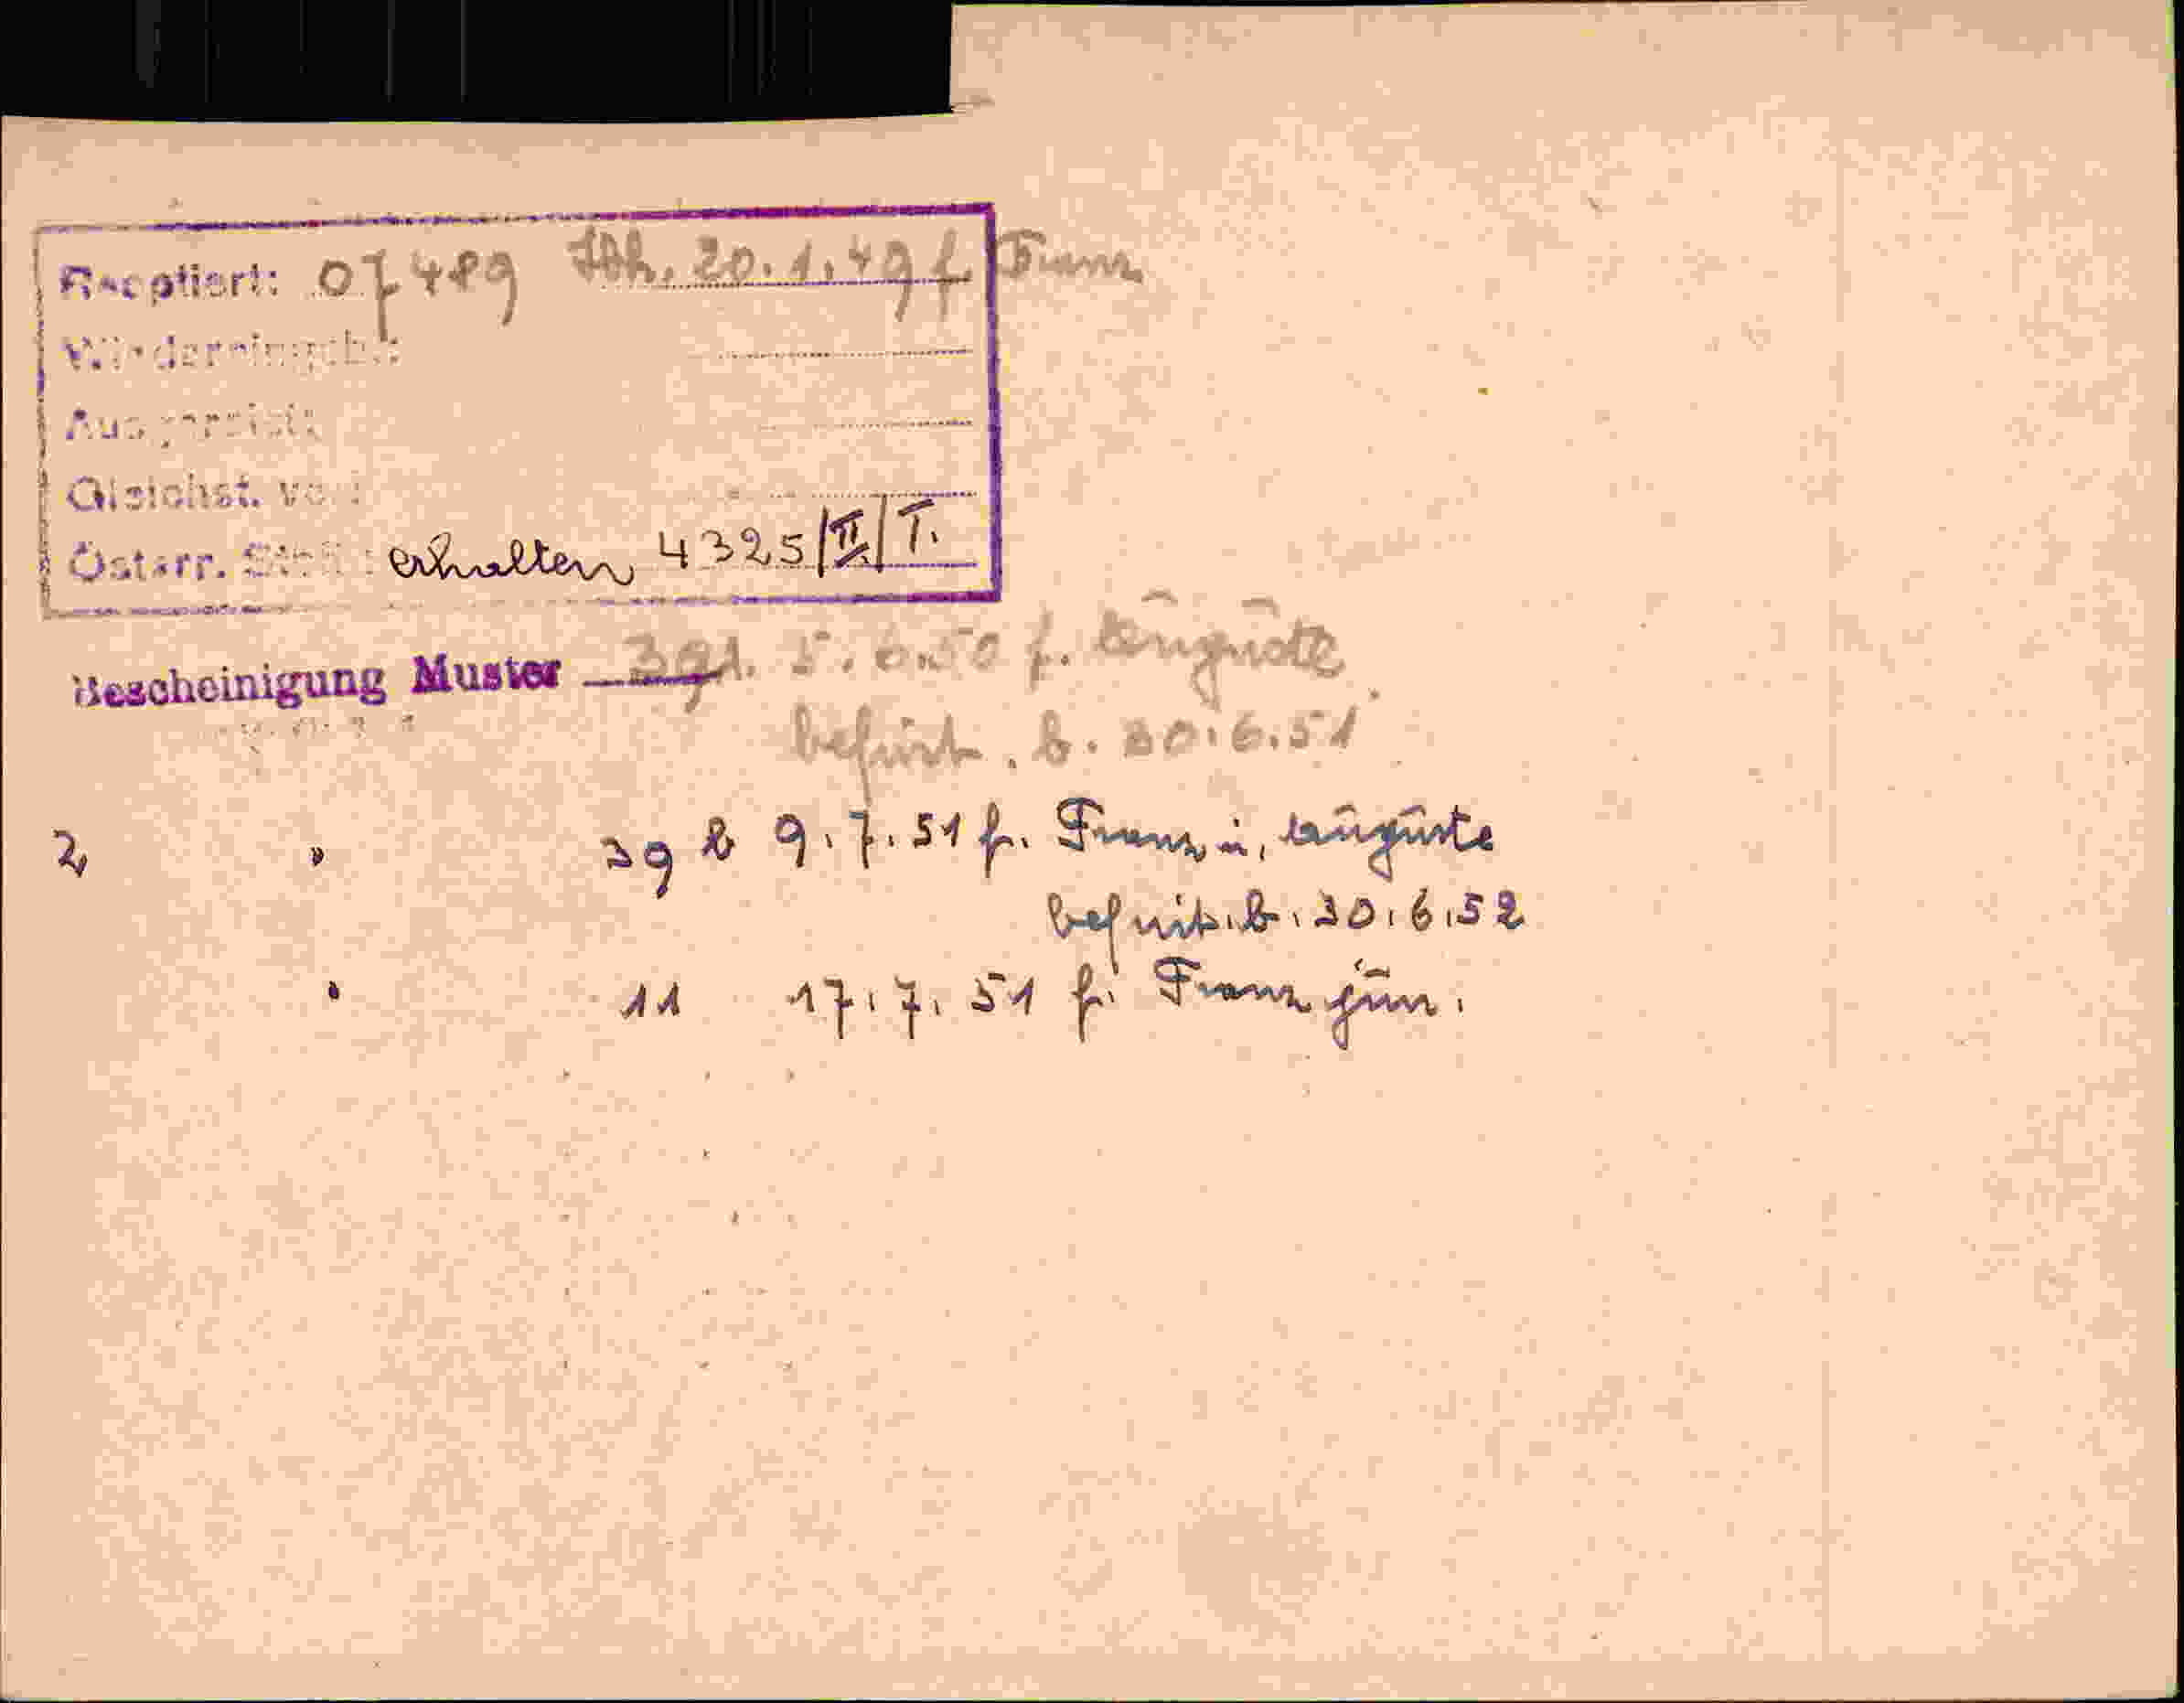 Reoptiert: 07489 20.1.49 f. Franz
Wiedereingeb.:
Ausgereist:
Gleichst. von:
Österr. Stb.: erhalten 4325/II/T.
Bescheinigung Muster 39 5.6.50 f. Auguste
befrist. b. 30.6.51
2, " 39 b 9.7.51 f. Franz u. Auguste
befrist. b. 30.6.52
" 11 17.7.51 f. Franz jun.